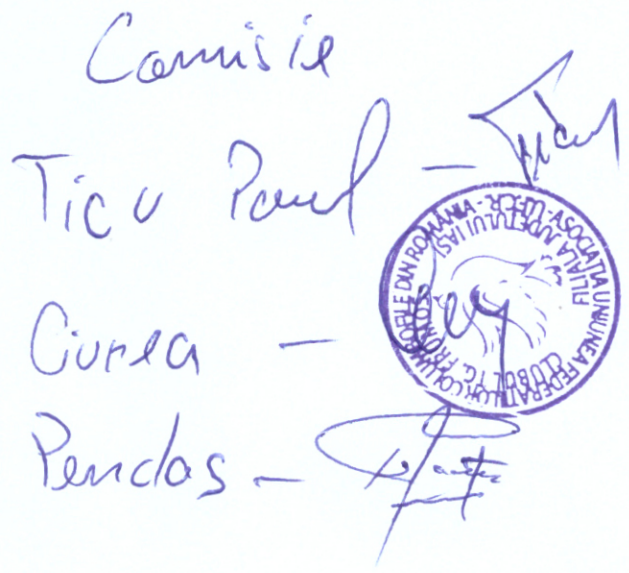 Comisie
Ticu Paul -
Ciurea -
Pendas -
ASOCIATIA UNIUNEA FEDERATIILOR COLUMBOFILE DIN ROMÂNIA - U.F.C.R.
FILIALA JUDETULUI IASI
CLUBUL TG. FRUMOS